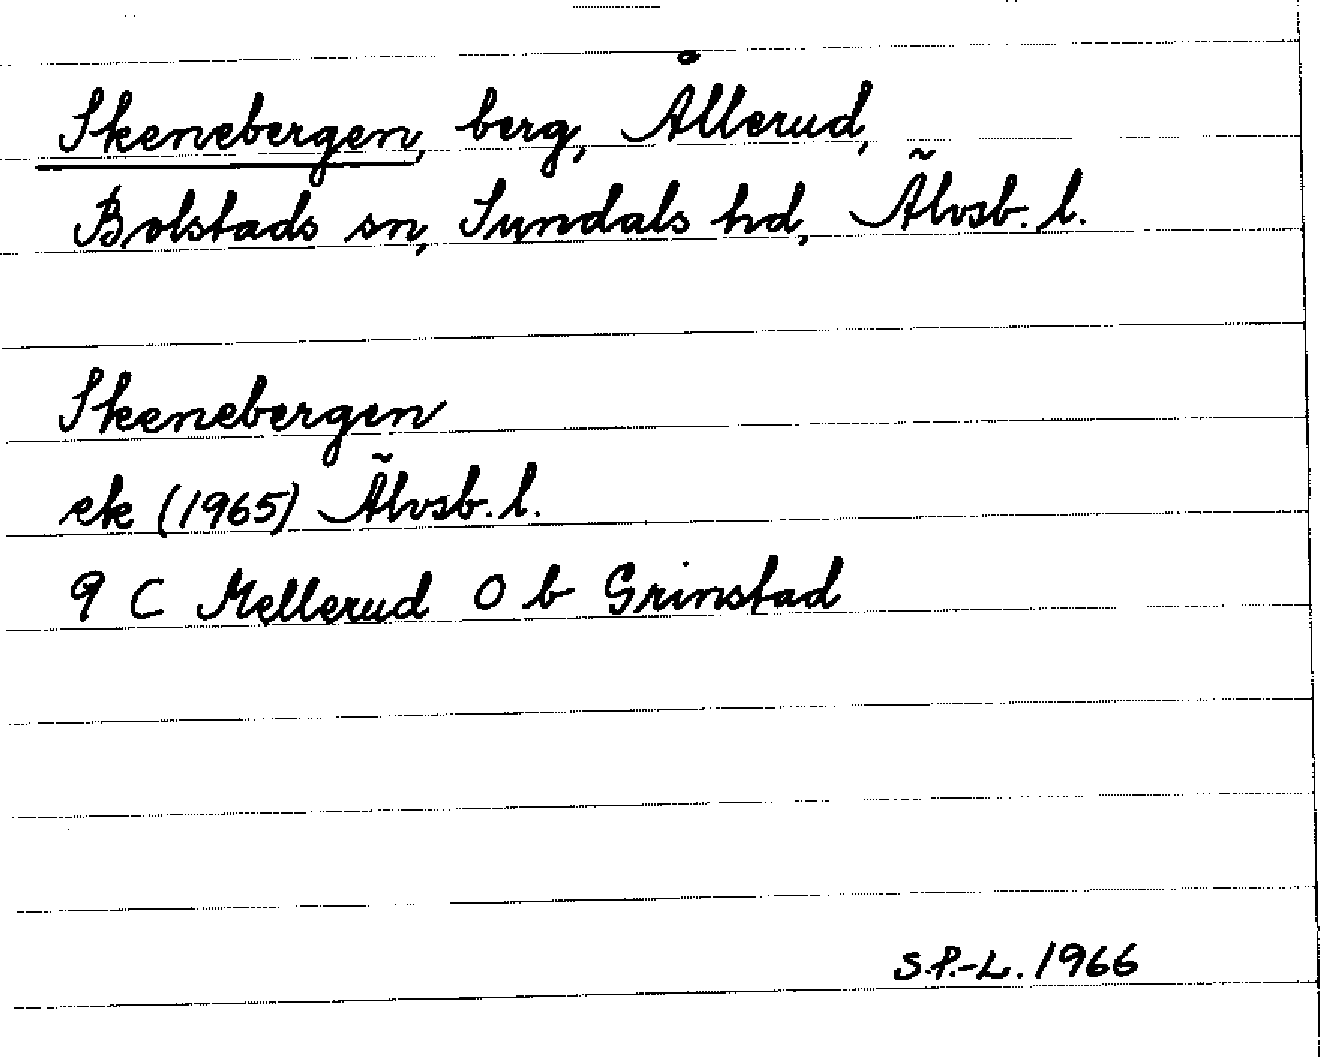 Skenebergen, berg, Ållerud,
Bolstads sn, Sundals hd, Älvsb. l.
Skenebergen
ek (1965) Älvsb. l.
9 C Mellerud O b Grinstad
S.P.-L. 1966